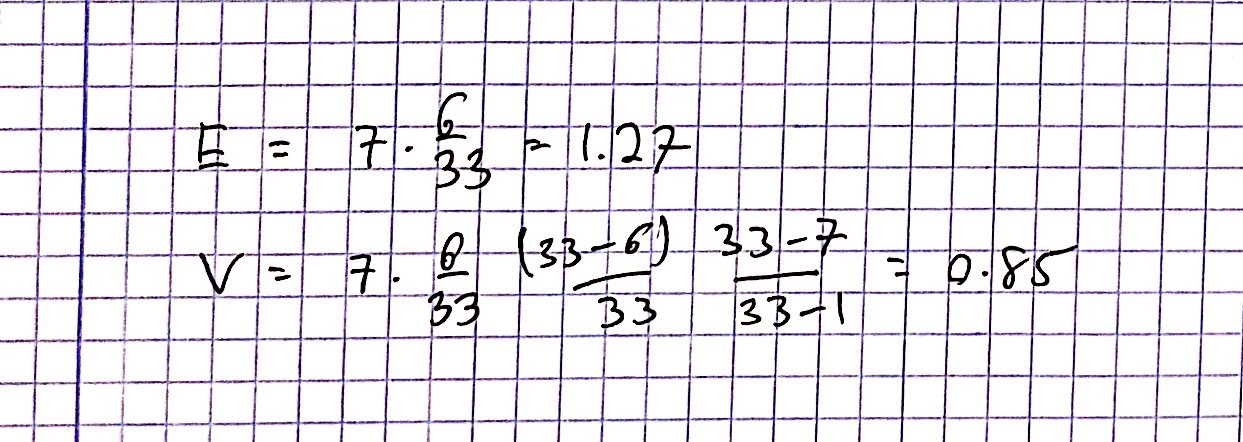 E = 7 · 6/33 = 1.27
V = 7 · 6/33 (33-6)/33 33-7/33-1 = 0.85